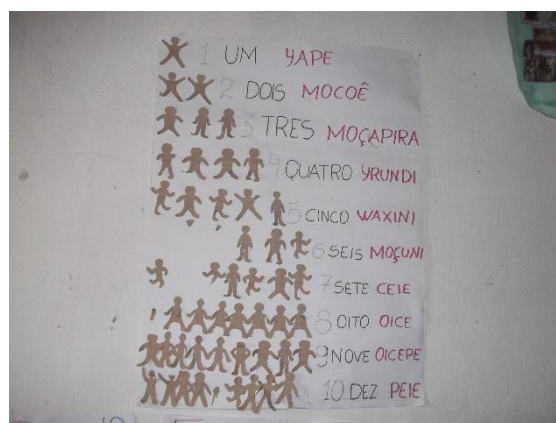 1 UM YAPE
2 DOIS MOCOÊ
3 TRES MOÇAPIRA
4 QUATRO YRUNDI
5 CINCO WAXINI
6 SEIS MOÇUNI
7 SETE CEIE
8 OITO OICE
9 NOVE OICEPE
10 DEZ PEIE